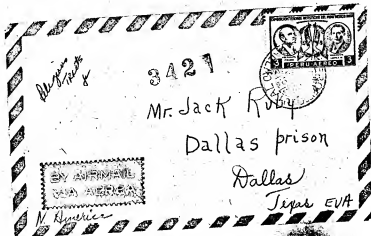 3421
3 PERU AEREO 3
Mr. Jack Ruby
Dallas prison
Dallas
Texas EUA
BY AIRMAIL
VIA AEREA
N. America